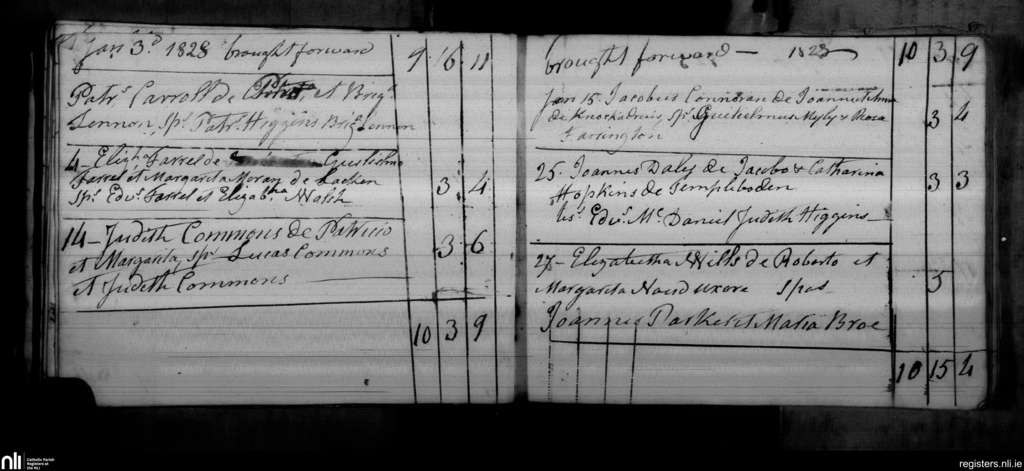 Jany 3d 1828 brought forward 9 16 11
Patrs Carroll de et Brigt
Lennon, sps Patrs Higgins Brigt Lennon
4 - Eligth Farrel de Gulielmo
Farrel et Margarita Moran de Lacken 3 4
Sps Edws Farrel et Elizabtha Walsh
14 - Judith Commons de Patricio 3 6
et Margarita, sps Lucas Commons
et Judith Commons
10 3 9
brought forward - 1828 10 3 9
Jan 15 Jacobus Connoran de Joanne et Anna
de Knockadroig sps Gulielmus Myly & Maria 3 4
Farrington
25. Joannes Daly de Jacobo & Catharina
Hopkins de Templiboden 3 3
Edws Mc Daniel Judith Higgins
27 - Elizabetha Mills de Roberto et
Margarita uxore Spos 5
Joannes Parker et Maria Broe
10 15 4
nli
Catholic Parish
Registers at
the NLI
registers.nli.ie